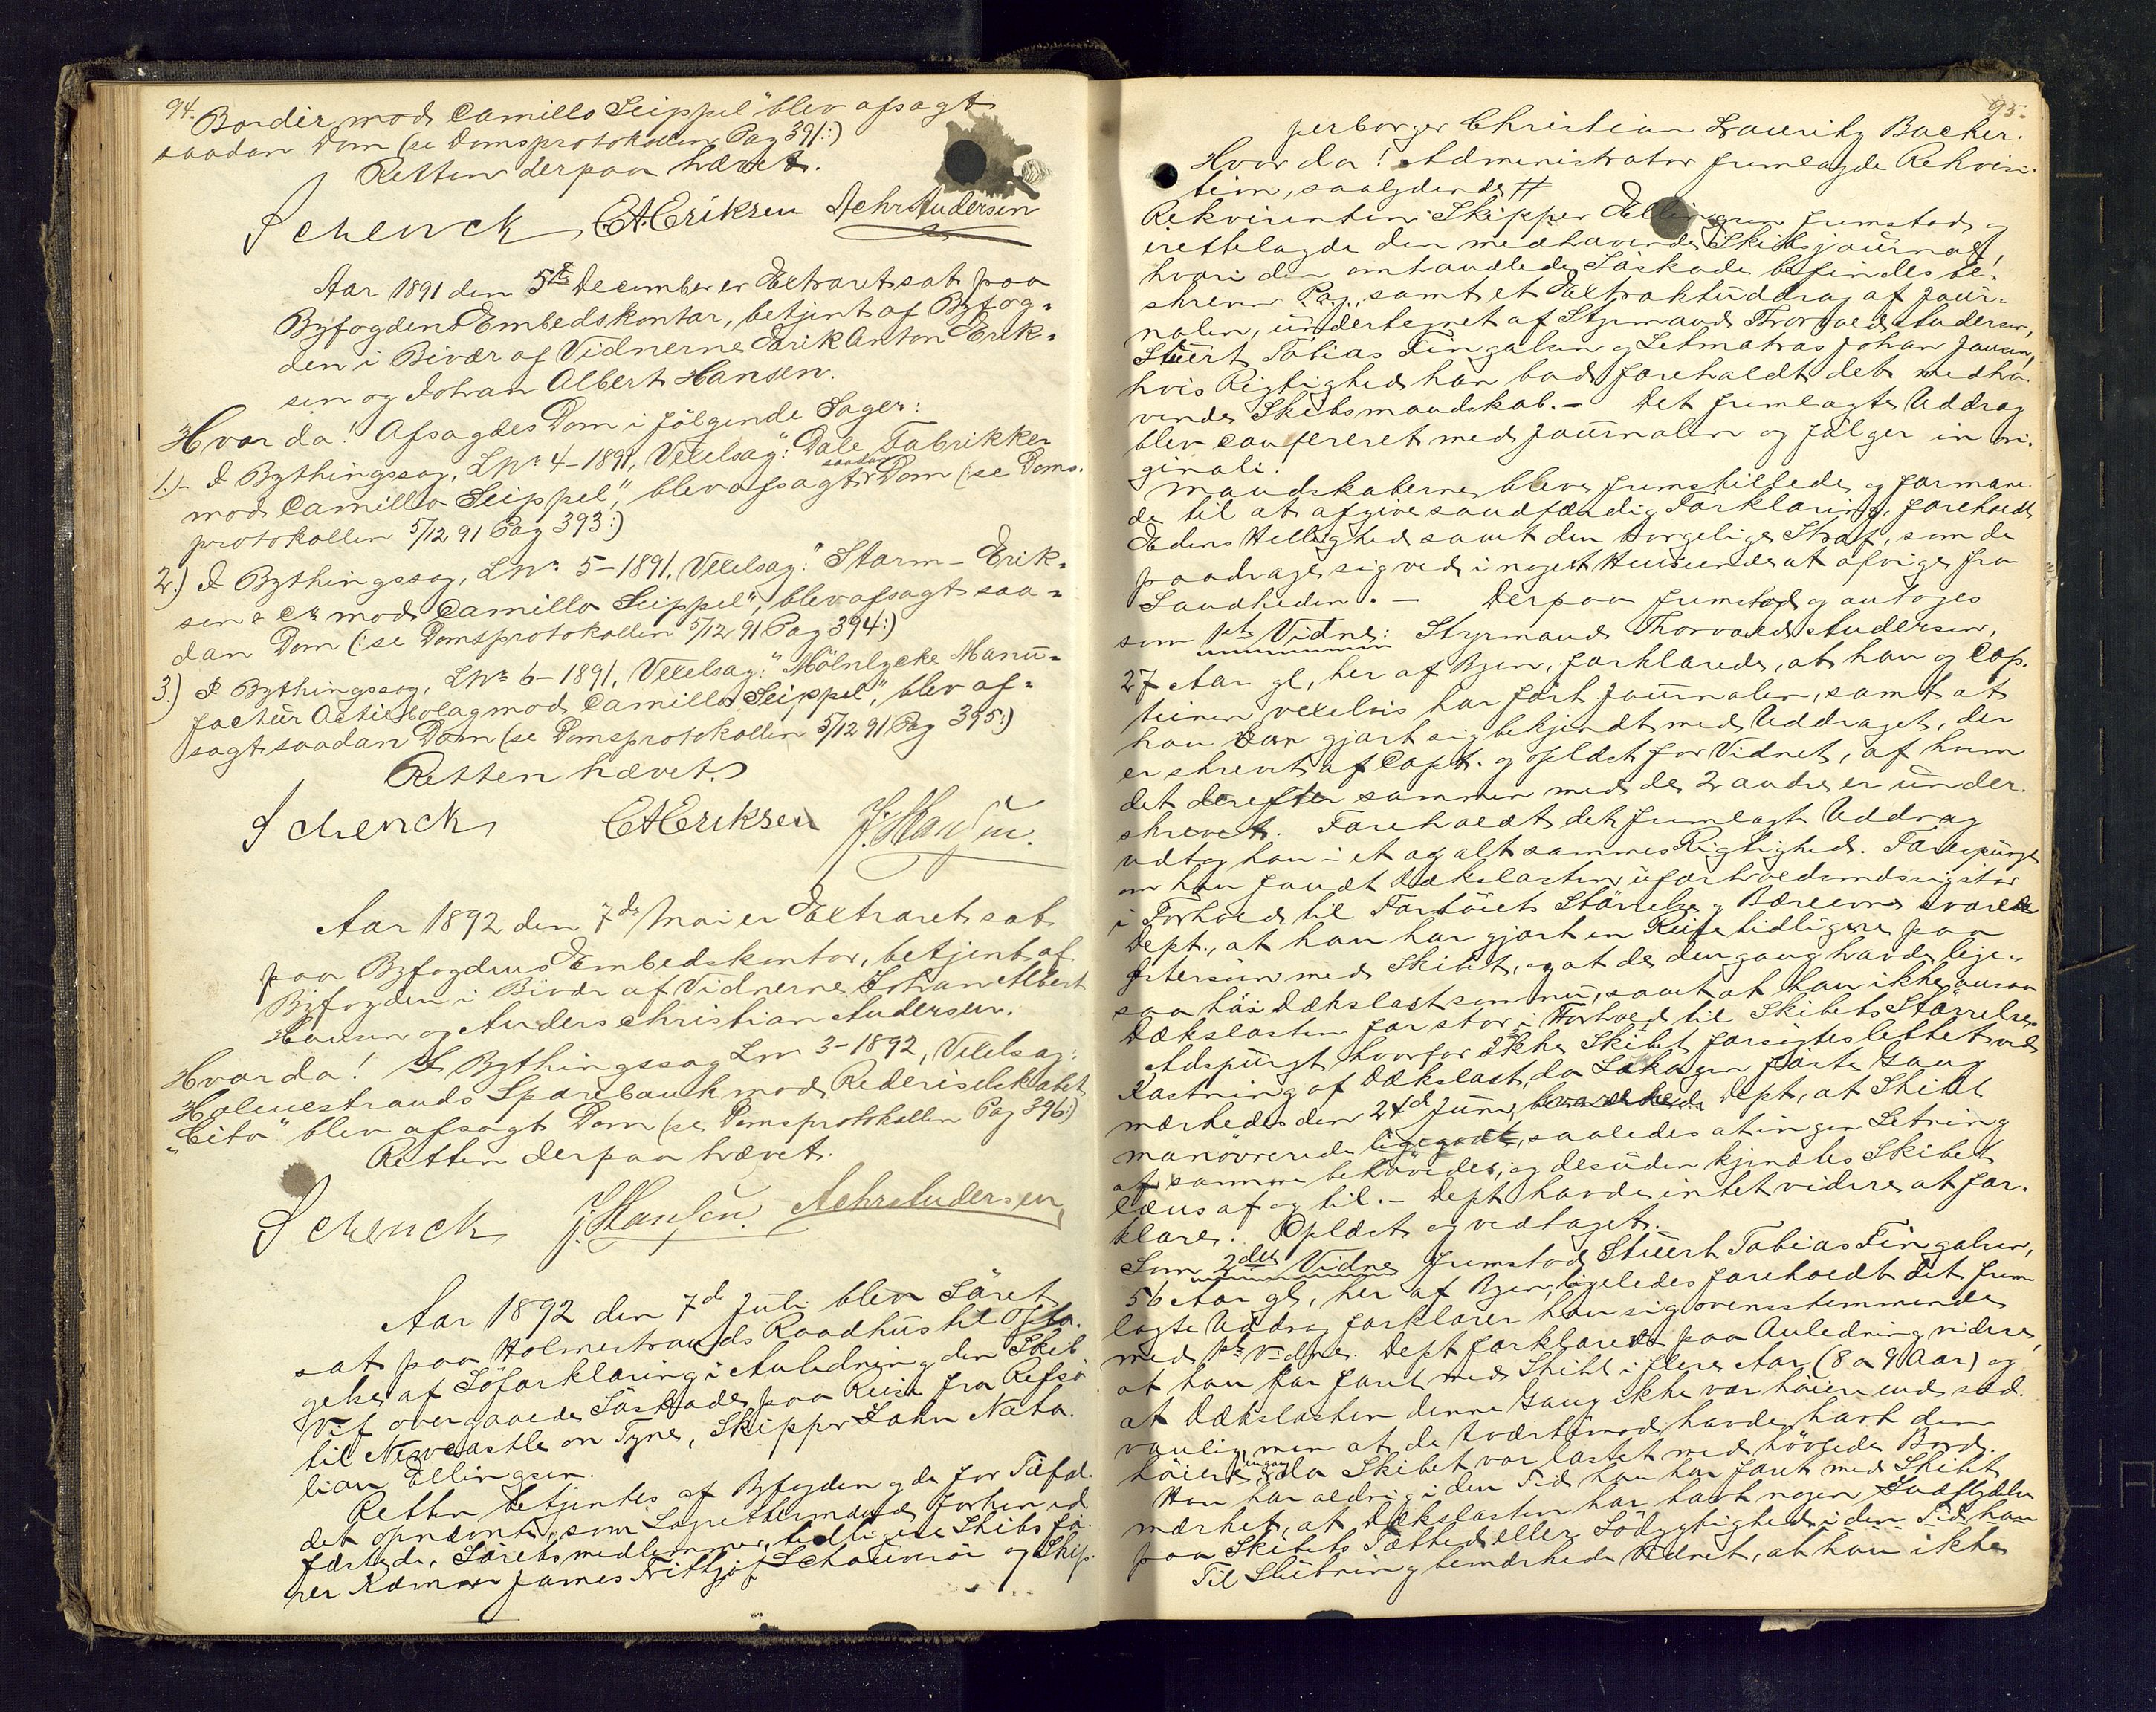 94.
Bordier mod Camillo Seippel" blev afsagt
saadan Dom (se Domsprotokollen Pag 391:)
Retten derpaa hævet.
Schenck E.A.Eriksen AChrAndersen
Aar 1891 den 5te December er Extraret sat paa
Byfogdens Embedskontor, betjent af Byfog-
den i Bivær af Vidnerne Erik Anton Erik-
sen og Johan Albert Hansen.
Hvorda! Afsagdes Dom i følgende Sager:
1.)- I Bythingssag, LNr 4-1891, Vexelsag: "Dale Fabrikker
mod Camillo Seippel", blev afsagt saadan Dom (:se Doms-
protokollen 5/12 91 Pag 393:)
2.) I Bythingssag, LNr 5-1891, Vexelsag: "Storm-Erik-
sen & Co mod Camillo Seippel", blev afsagt saa-
dan Dom (:se Domsprotokollen 5/12 91 Pag 394:)
3.) I Bythingssag, LNr 6-1891, Vexelsag: "Mölnlycke Manu-
factur Actiebolag mod Camillo Seippel", blev af-
sagt saadan Dom (se Domsprotokollen 5/12 91 Pag 395:)
Retten hævet.
Schenck EAEriksen J.Hansen.
Aar 1892 den 7de Mai er Extraret sat
paa Byfogdens Embedskontor, betjent af
Byfogden i Bivær af Vidnerne Johan Albert
Hansen og Anders Christian Andersen.
Hvorda! I Bythingssag Lnr 3-1892, Vexelsag:
Holmestrands Sparebank mod Rederiselskabet
"Cito" blev afsagt Dom (se Domsprotokollen Pag 396:)
Retten derpaa hævet.
Schenck J.Hansen. AChrAndersen,
Aar 1892 den 7de Juli blev Søret
sat paa Holmestrands Raadhus til Opta-
gelse af Søforklaring i Anledning den Skib
overgaaede Søskade paa Reise fra Refsø
til Newcastle on Tyne, Skipper John Nata-
lian Ellingsen.
Retten betjentes af Byfogden og de for Tilfæl-
det opnævnte, som Lagrettemænd forhen ed-
fæstede, Søretsmedlemmer, tidligere Skibsfø-
rer Ræmer James Frithjof Schauerøi og Skip-
95.
perborger Christian Lauritz Backer.
Hvor da! Administrator fremlagde Rekvisi-
tion, saalydende #
Rekvirenten Skipper Ellingsen fremstod og
irettelagde den medhavende Skibsjournal,
hvori den omhandlede Søskade befindes be-
skreven Pag., samt et Extraktuddrag af Jour-
nalen, undertegnet af Styrmand Thorvald Andersen,
Stuert Tobias Fingalsen og Letmatros Johan Jansen,
hvis Rigtighed han bad foreholdt det medha-
vende Skibsmandskab. - Det fremlagte Uddrag
blev confereret med Journalen og følger in ori-
ginali.
Mandskaberne bleve fremstillede og formane-
de til at afgive sandfærdig Forklaring, foreholdt
Edens Hellighed samt den borgerlige Straf, som de
paadrage sig ved i noget Henseende at afvige fra
Sandheden. - Derpaa fremstod og antoges
som 1ste Vidne: Styrmand Thorvald Andersen,
27 Aar gl, her af Byen, forklarede, at han og Cap-
teinen vexelvis har ført Journalen, samt at
han har gjort sig bekjendt med Uddraget, der
er skrevet af Capt. og oplæst for Vidnet, af hvem
det derefter sammen med de 2 andre er under-
skrevet. Foreholdt det fremlagt Uddrag
vedtog han i et og alt sammes Rigtighed. Forespurgt
om han fandt Dækslasten uforholdsmæssig stor
i Forhold til Fartøiets Størrelse og Bæreevne svarede
Dept., at han har gjort en Reise tidligere paa
Østersøen med Skibet, og at de dengang havde lige-
saa høi Dækslast som nu, samt at han ikke ansaa
Dækslasten for stor i Forhold til Skibets Størrelse.
Adspurgt hvorfor ikke Skibet forsøgtes lettet ved
Kastning af Dækslast, da Lækagen første Gang
mærkedes den 24de Juni, Dept, at Skibet
manøvrerede ligegodt, saaledes at ingen Letning
af samme behøvedes, og desuden kjendtes Skibet
læns af og til. - Dept havde intet videre at for-
klare. Oplæst og vedtaget.
Som 2det Vidne fremstod Stuert Tobias Fingalsen,
56 Aar gl, her af Byen, ligeledes foreholdt det frem-
lagte Uddrag forklarer han sig overensstemmende
med 1ste Vidne. Dept forklarede paa Anledning videre,
at han har faret med Skibet i flere Aar (8 a 9 Aar) og
at Dækslasten denne Gang ikke var høiere end sæd-
vanlig, men at de tvertimod havde havt den
høiere engang, da Skibet var lastet med høvlede Bord.
Han har aldrig i den Tid han har faret med Skibet
mærket, at Dækslasten har havt nogen Indflydelse
paa Skibets Tæthed eller Sødygtighed i den Tid, han
Til Slutning bemærkede Vidnet, at han ikke